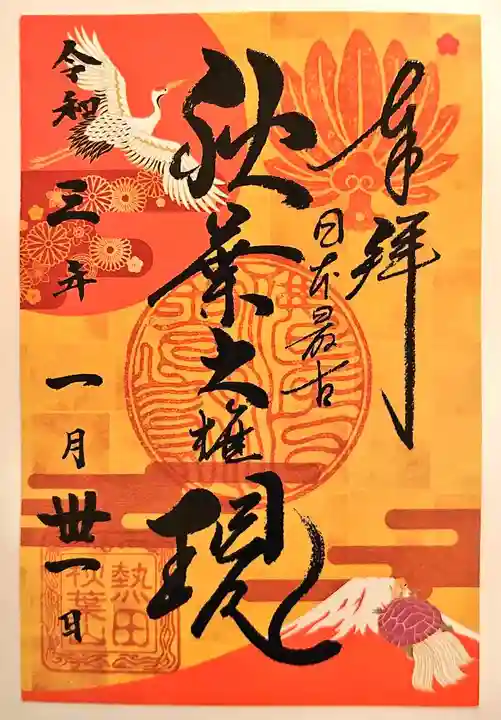 奉拝
日本最古
秋葉大権現
令和三年
一月卅一日
熱田
秋葉山